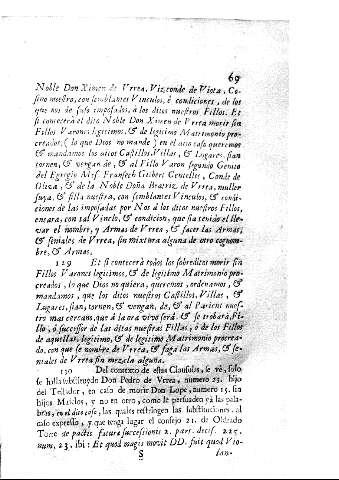 69
Noble Don Ximen de Vrrea, Vizconde de Viota, Co-
sino nuestro, con semblantes Vinclos, è condiciones, de los
que nos de suso imposados, à los ditos nuestros Fillos. Et
si contecerà el dito Noble Don Ximen de Vrrea morir sin
Fillos Varones legitimos, & de legitimo Matrimonio pro-
creados; (lo que Dios no mande) en el dito caso queremos
& mandamos los ditos Castillos, Villas, & Lugares, sian
tornen, & vengan de, al Fillo Varon segundo Genito
del Egregio Mos. Francisch Gilbert Centelles, Conde de
Oliva, & de la Noble Doña Beatriz de Vrrea, muller
suya, & filla nuestra, con semblantes Vinclos, & condi-
ciones de las imposadas por Nos à los ditos nuestros Fillos,
encara, con tal Vinclo, & condicion, que sia tenido el lle-
var el nombre, y Armas de Vrrea, & facer las Armas,
& señales de Vrrea, sin mixtura alguna de otro cognom-
bre, & Armas.
129 Et si contecerà todos los sobreditos morir sin
Fillos Varones legitimos, & de legitimo Matrimonio pro-
creados, lo que Dios no quiera, queremos, ordenamos, &
mandamos, que los ditos nuestros Castillos, Villas, &
Lugares, sian, tornen, & vengan, de, al Parient nues-
tro mas cercano, que à la ora vivo serà, & se trobarà, Fi-
llo, ò successor de las ditas nuestras Fillas, ò de los Fillos
de aquellas, legitimo, & de legitimo Matrimonio procrea-
do, con que se nombre de Vrrea, & faga las Armas, & se-
ñales de Vrrea sin mezcla alguna.
130 Del contexto de estas Clausulas, se vè, solo
se halla substituydo Don Pedro de Vrrea, numero 23. hijo
del Testador, en caso de morir Don Lope, numero 15. sin
hijos Maschos, y no en otro, como le persuaden yà las pala-
bras, en el dito caso, las quales restringen las substituciones, al
caso expresso, y que tenga lugar el consejo 21. de Oldrado
Torre de pactis futuræ successionis 2. part. decis. 225.
num. 23. ibi: Et quod magis movit DD. fuit quod Vio-
S
lan-